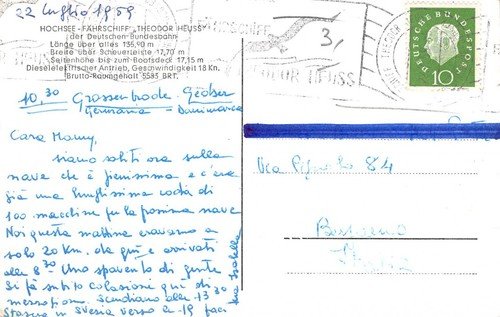 22 Luglio 1959
HOCHSEE-FÄHRSCHIFF „THEODOR HEUSS"
der Deutschen Bundesbahn
Länge über alles 136,90 m
Breite über Scheuerleiste 17,70 m
Seitenhöhe bis zum Bootsdeck 17,15 m
Dieselelektrischer Antrieb, Geschwindigkeit 18 Kn.
Brutto-Raumgehalt 5585 BRT.
10,30 Grossenbrode - Gedser
Germania Danimarca
Cara Mamy,
siamo saliti ora sulla
nave che è pienissima e c'era
già una lunghissima coda di
100 macchine per la prossima nave
Noi questa mattina eravamo a
solo 20 Km. da qui e arrivati
alle 8.30. Uno spavento di gente
Si fa subito colazione qui di
mezzogiorno. Scendiamo alle 13.30
Stasera in Svezia verso le 19
tua Isabella
THEODOR HEUSS
DEUTSCHE BUNDESPOST
10
Via 84